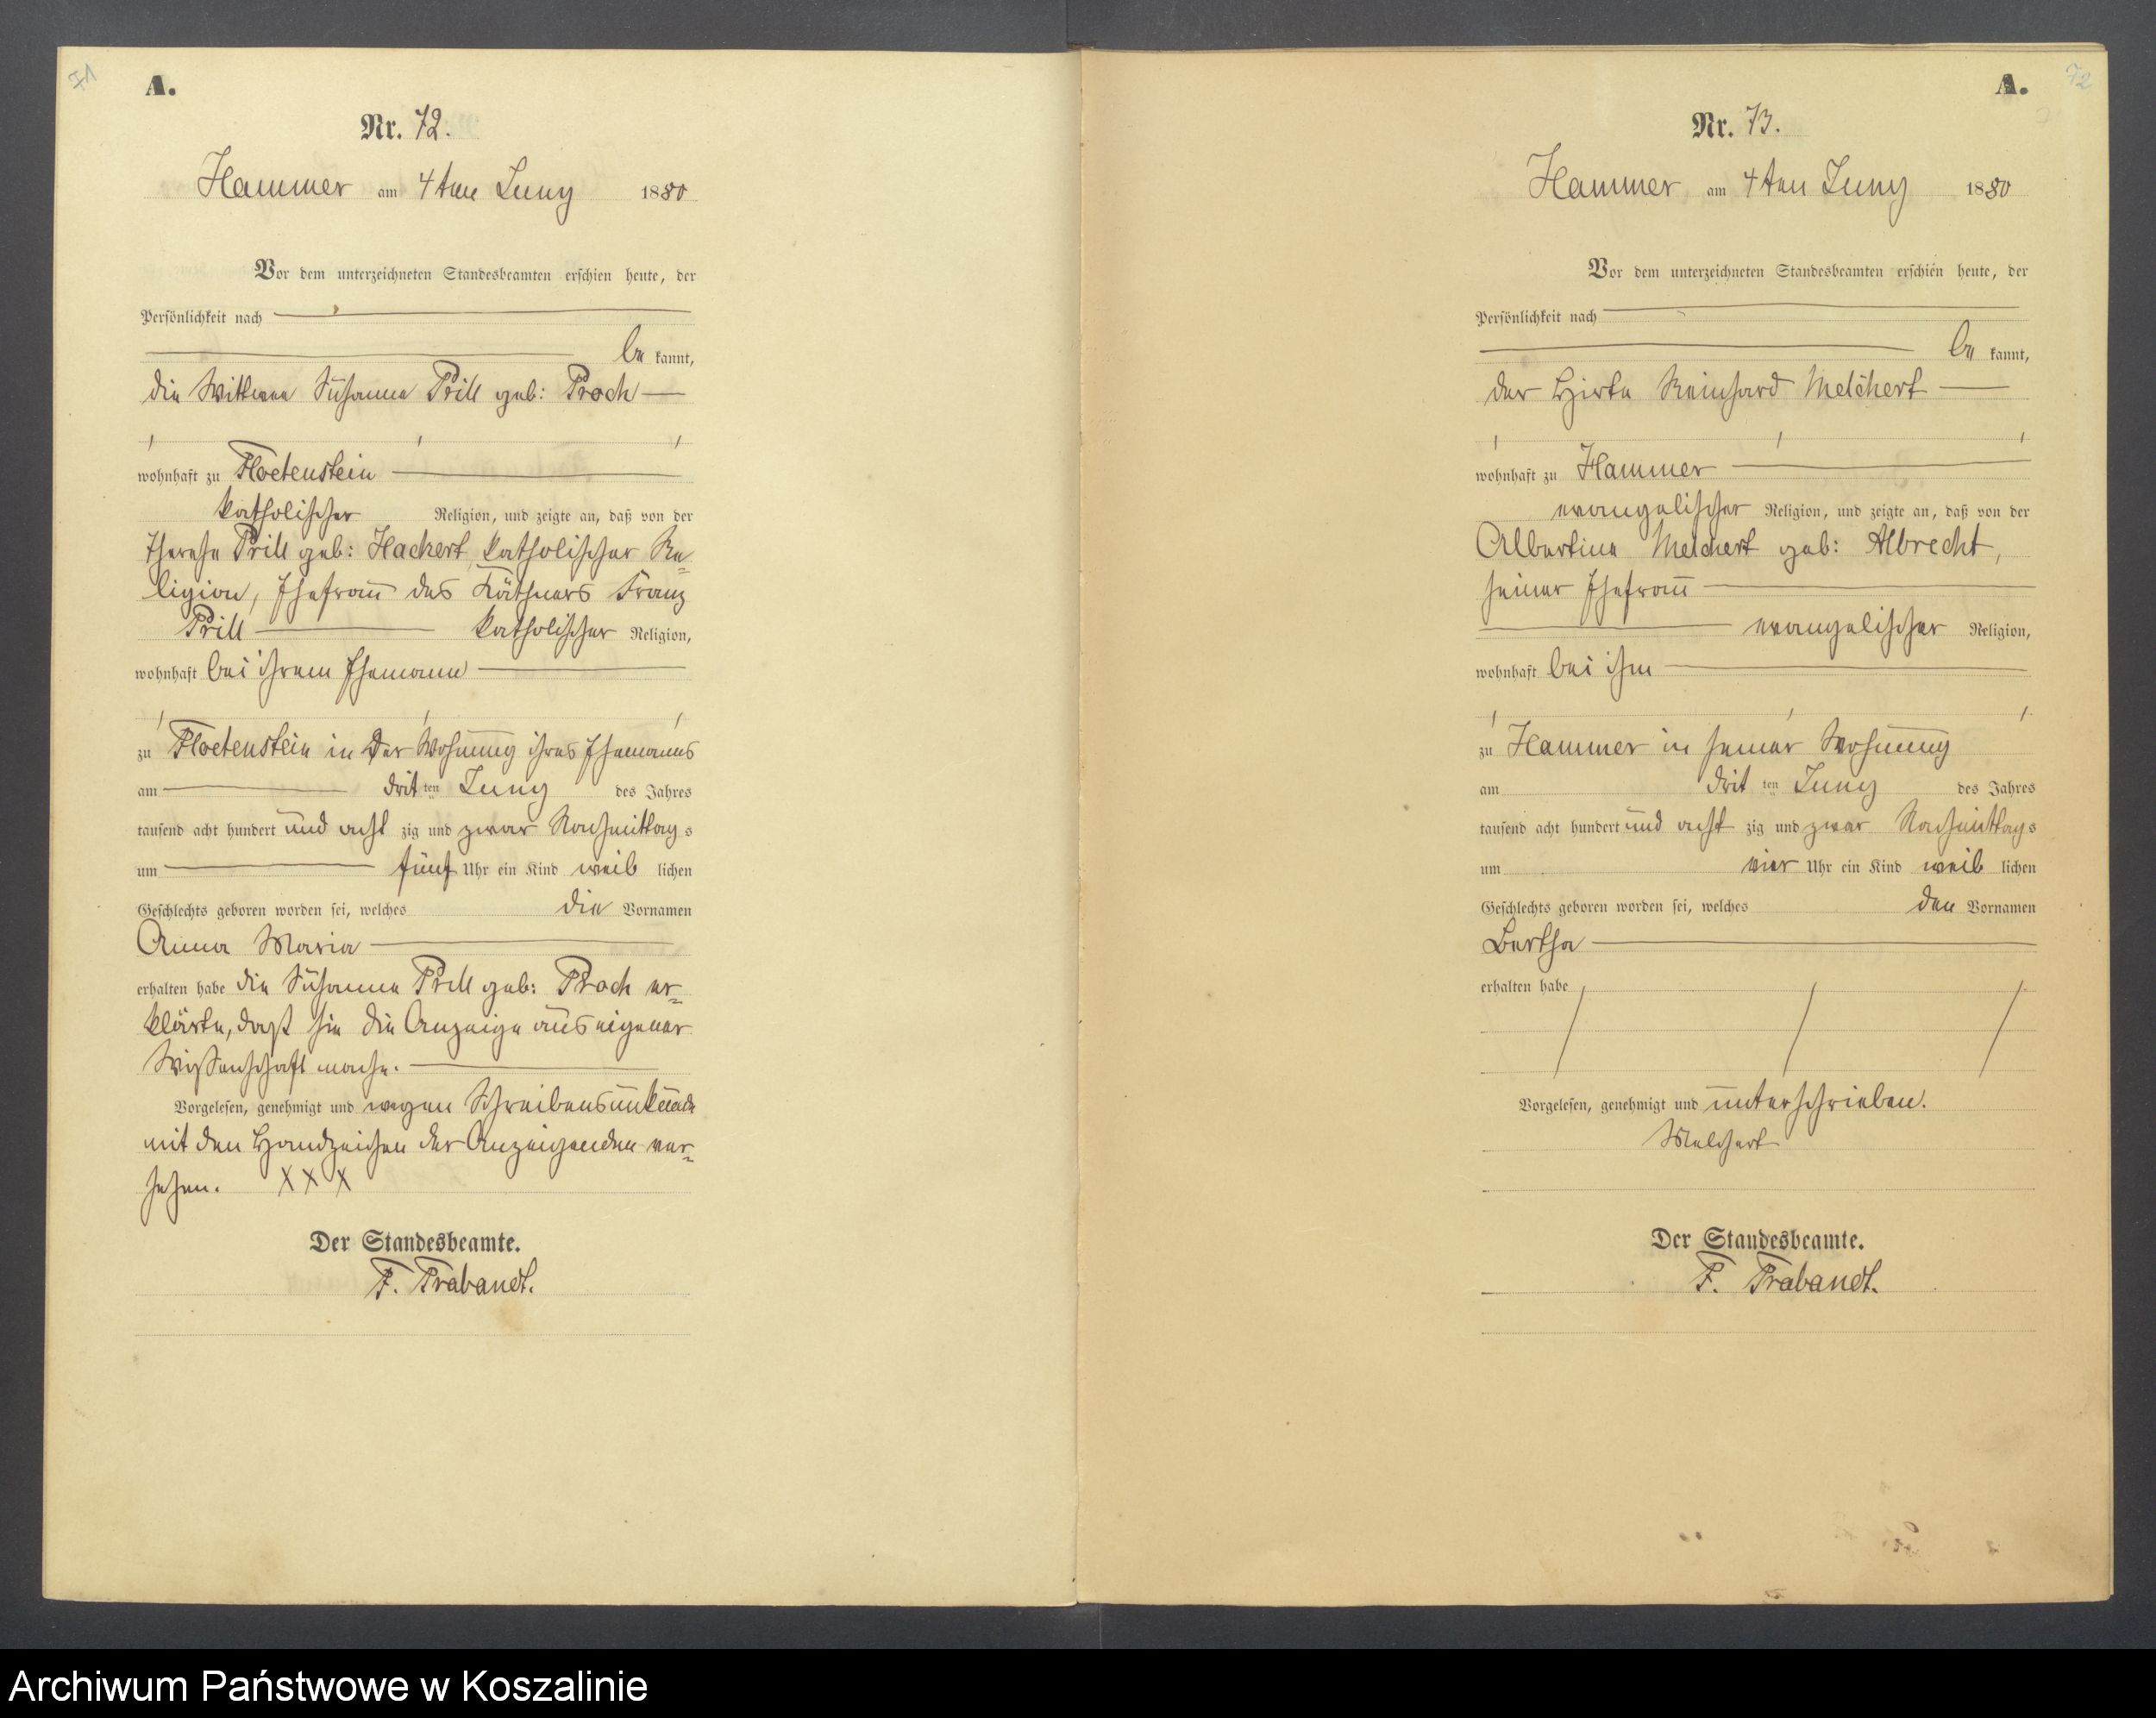 71
A.
Nr. 72.
Hammer am 4ten Juny 1880
Vor dem unterzeichneten Standesbeamten erschien heute, der
Persönlichkeit nach
be kannt,
die Wittwe Susanna Prill geb: Proch
wohnhaft zu Floetenstein
katholischer Religion, und zeigte an, daß von der
Therese Prill geb: Hackert, katholischer Re=
ligion, Ehefrau des Käthners Franz
Prill katholischer Religion,
wohnhaft bei ihrem Ehemann
zu Floetenstein in der Wohnung ihres Ehemanns
am drit ten Juny des Jahres
tausend acht hundert und acht zig und zwar Nachmittag s
um fünf Uhr ein Kind weib lichen
Geschlechts geboren worden sei, welches die Vornamen
Anna Maria
erhalten habe die Susanna Prill geb: Proch er=
klärte, daß sie die Anzeige aus eigener
Wissenschaft mache.
Vorgelesen, genehmigt und wegen Schreibensunkunde
mit den Handzeichen der Anzeigenden ver=
sehen. XXX
Der Standesbeamte.
F. Trabandt.
72
A.
Nr. 73.
Hammer am 4ten Juny 1880
Vor dem unterzeichneten Standesbeamten erschien heute, der
Persönlichkeit nach
be kannt,
der Hirte Reinhard Melchert
wohnhaft zu Hammer
evangelischer Religion, und zeigte an, daß von der
Albertine Melchert geb: Albrecht,
seiner Ehefrau
evangelischer Religion,
wohnhaft bei ihm
zu Hammer in seiner Wohnung
am drit ten Juny des Jahres
tausend acht hundert und acht zig und zwar Nachmittags
um vier Uhr ein Kind weib lichen
Geschlechts geboren worden sei, welches den Vornamen
Bertha
erhalten habe
Vorgelesen, genehmigt und unterschrieben.
Melchert
Der Standesbeamte.
F. Trabandt.
Archiwum Państwowe w Koszalinie